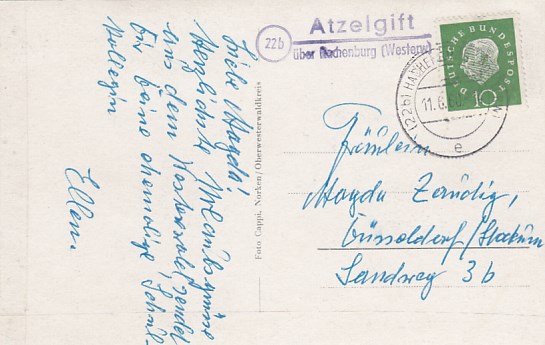 Liebe Magda!
Herzlichste Urlaubsgrüße
aus dem Westerwald sendet
Dir Deine ehemalige Schul-
kollegin
Ellen.
Foto Cappi, Norken/Oberwesterwaldkreis
22b
Atzelgift
über Hachenburg (Westerw)
(22b) HACHE
11.8.
e
DEUTSCHE BUNDESPOST
10
Fräulein
Magda Zaudig,
Düsseldorf/Stockum
Sandweg 3b